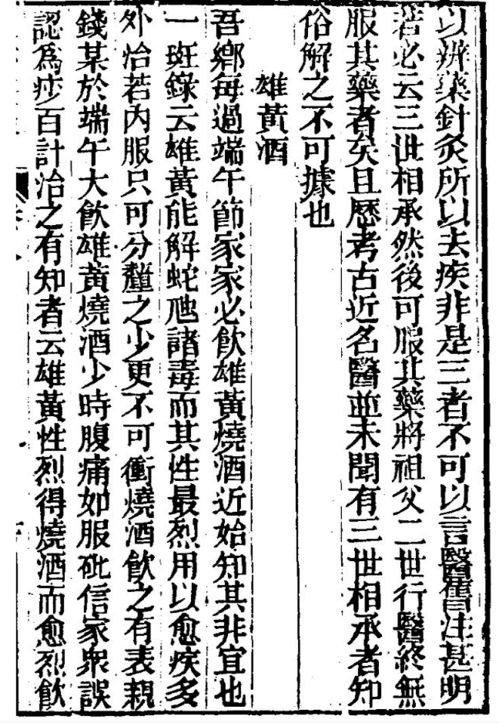 以辨藥針灸所以去疾非是三者不可以言醫舊注甚明
若必云三世相承然後可服其藥將祖父二世行醫終無
服其藥者矣且歷考古近名醫並未聞有三世相承者知
俗解之不可據也
雄黃酒
吾鄉每過端午節家家必飲雄黃燒酒近始知其非宜也
一斑錄云雄黃能解蛇虺諸毒而其性最烈用以愈疾多
外治若內服只可分釐之少更不可衝燒酒飲之有表親
錢某於端午大飲雄黃燒酒少時腹痛如服砒信家衆誤
認爲痧百計治之有知者云雄黃性烈得燒酒而愈烈飲